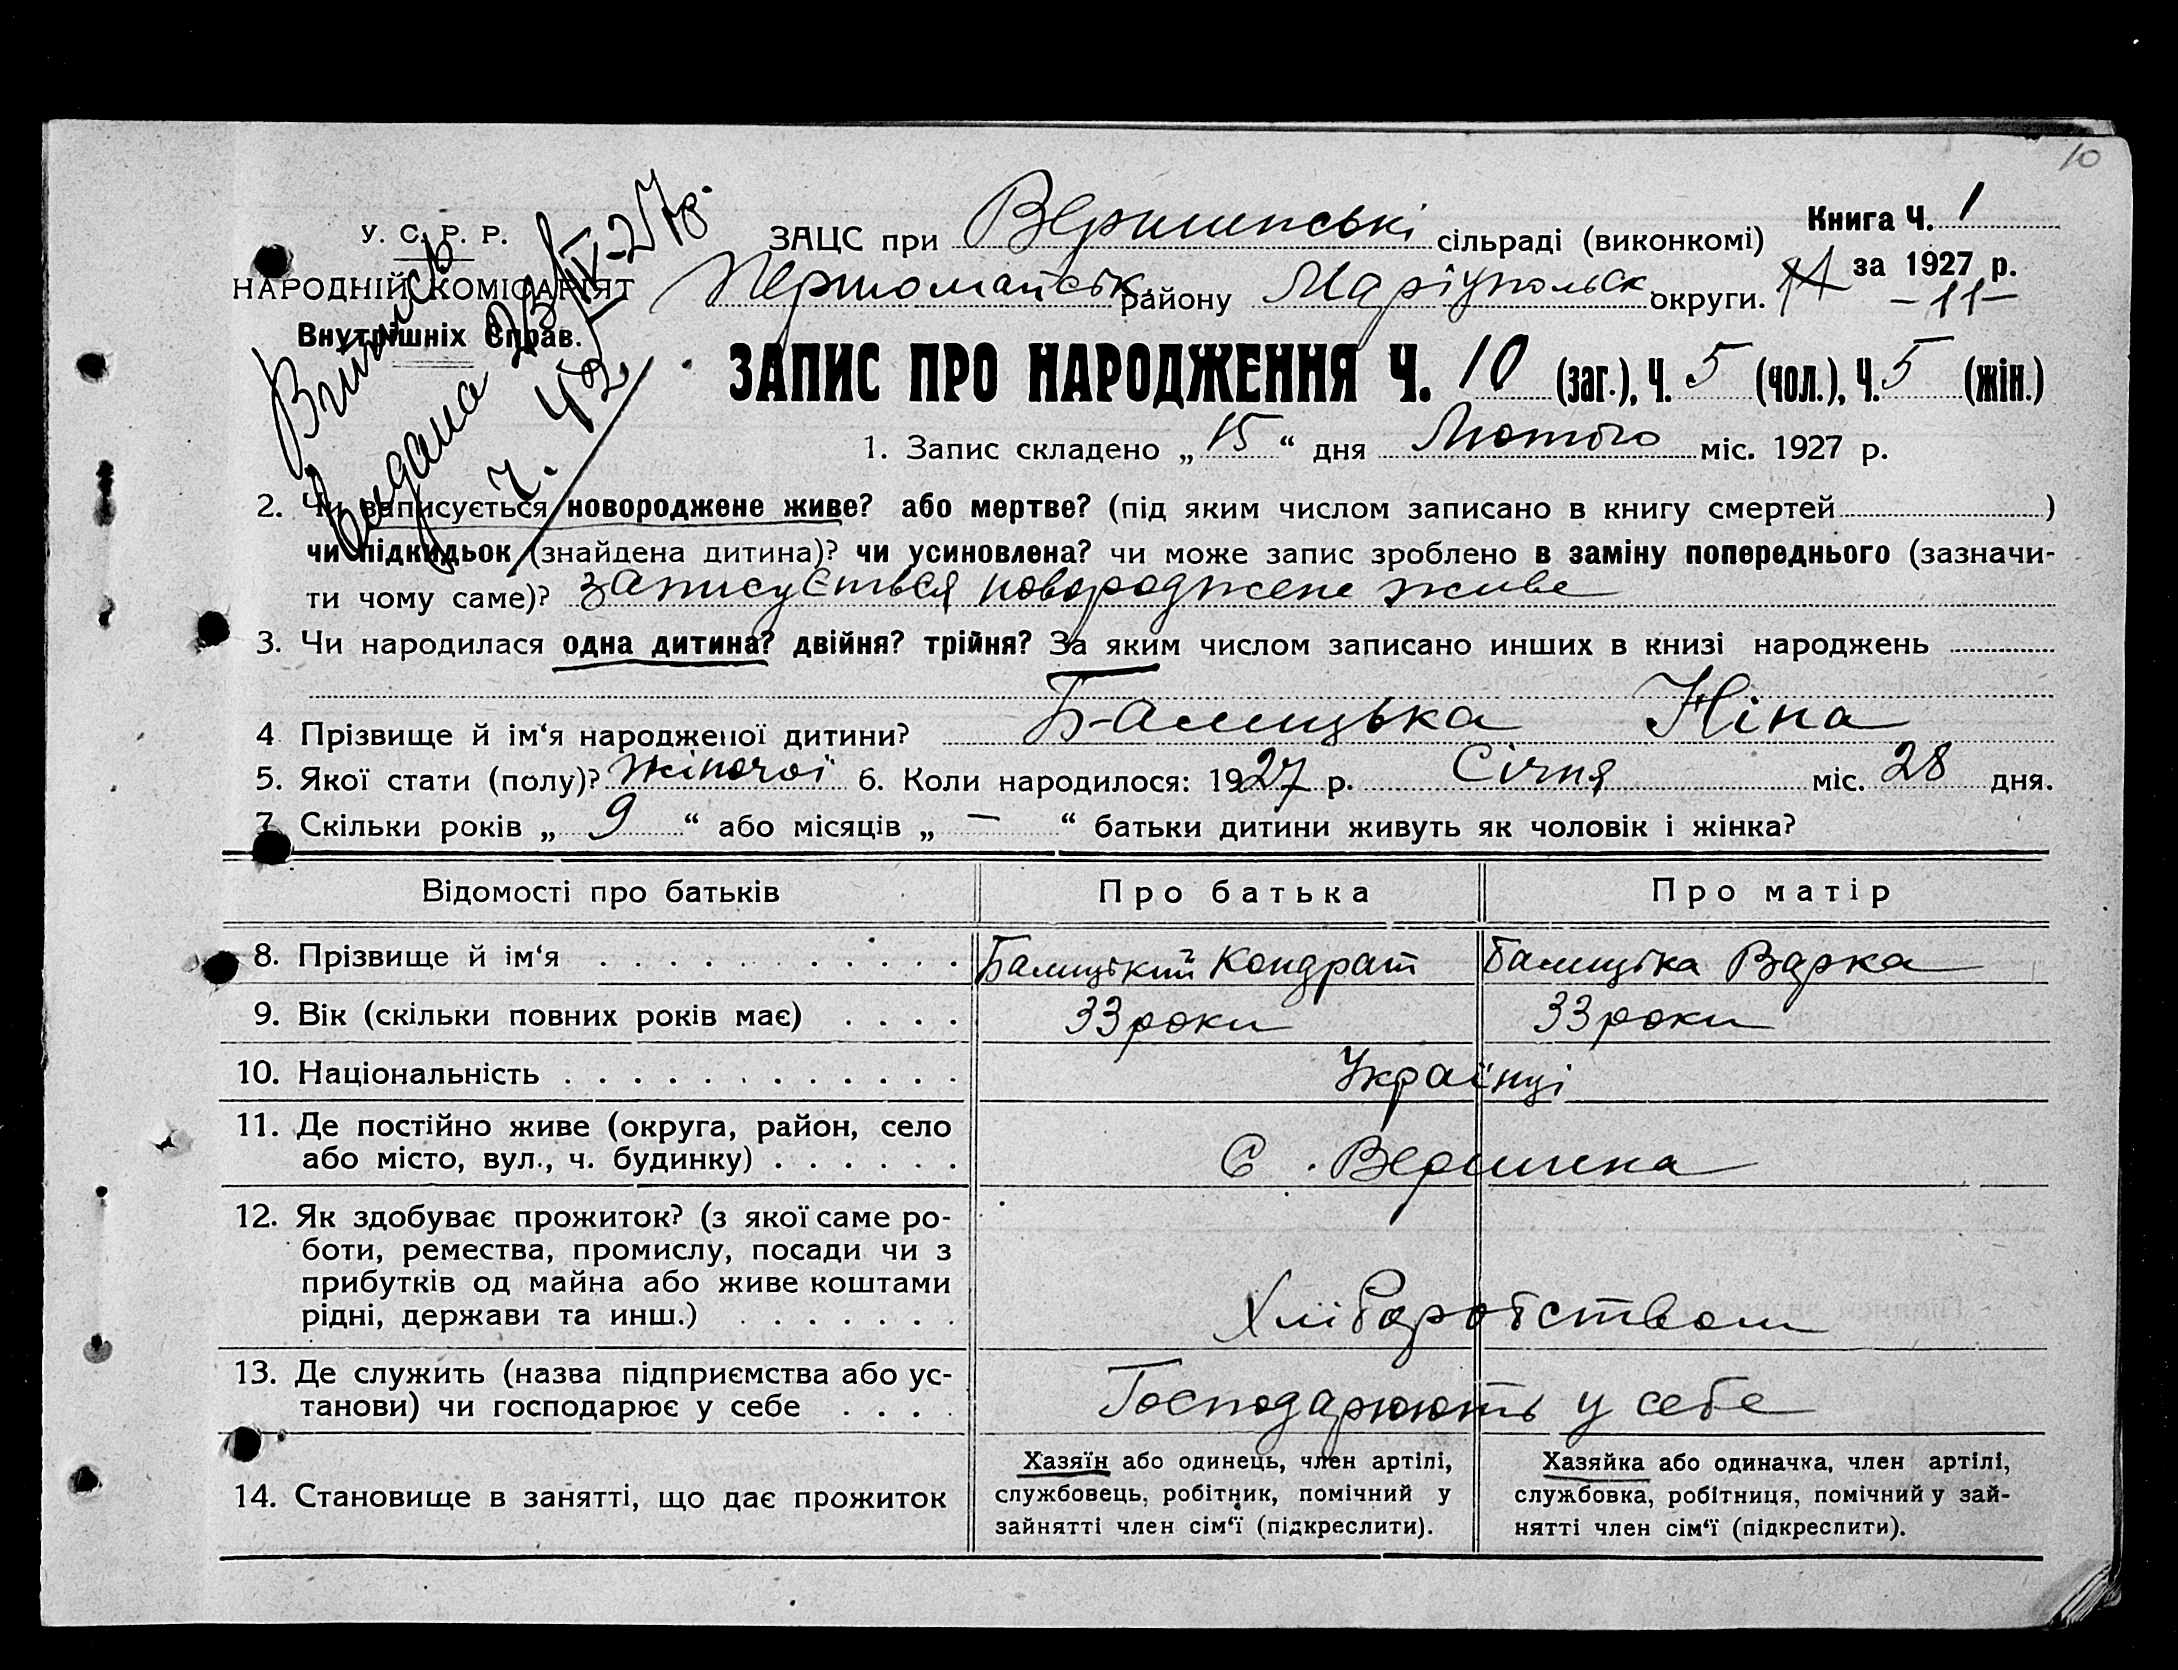 10
У. С. Р. Р.
НАРОДНІЙ КОМІСАРІЯТ
Внутрішніх Справ.
Витись
видана 23/IV-27р.
ч. 42
ЗАЦС при Вершинські сільраді (виконкомі)
Книга Ч. 1
за 1927 р.
Першомайськ. району Маріупольск. округи.
-11-
ЗАПИС ПРО НАРОДЖЕННЯ Ч. 10 (заг.), Ч. 5 (чол.), Ч. 5 (жін.)
1. Запис складено „ 15 “ дня Лютого міс. 1927 р.
2. Чи записується новороджене живе? або мертве? (під яким числом записано в книгу смертей )
чи підкидьок (знайдена дитина)? чи усиновлена? чи може запис зроблено в заміну попереднього (зазначи-
ти чому саме)? записується новороджене живе
3. Чи народилася одна дитина? двійня? трійня? За яким числом записано инших в книзі народжень
4 Прізвище й ім‘я народженої дитини? Балицька Ніна
5. Якої стати (полу)? жіночої 6. Коли народилося: 1927 р. Січня міс. 28 дня.
7. Скільки років „ 9 “ або місяців „ — “ батьки дитини живуть як чоловік і жінка?
Відомості про батьків Про батька Про матір
8. Прізвище й ім‘я Балицький Кондрат Балицька Варка
9. Вік (скільки повних років має) 33 роки 33 роки
10. Національність Українці
11. Де постійно живе (округа, район, село
або місто, вул., ч. будинку) С. Вершина
12. Як здобуває прожиток? (з якої саме ро-
боти, ремества, промислу, посади чи з
прибутків од майна або живе коштами
рідні, держави та инш.) Хліборобством
13. Де служить (назва підприємства або ус-
танови) чи господарює у себе Господарюють у себе
14. Становище в занятті, що дає прожиток
Хазяїн або одинець, член артілі,
службовець, робітник, помічний у
зайнятті член сім‘ї (підкреслити).
Хазяйка або одиначка, член артілі,
службовка, робітниця, помічний у зай-
нятті член сім‘ї (підкреслити).